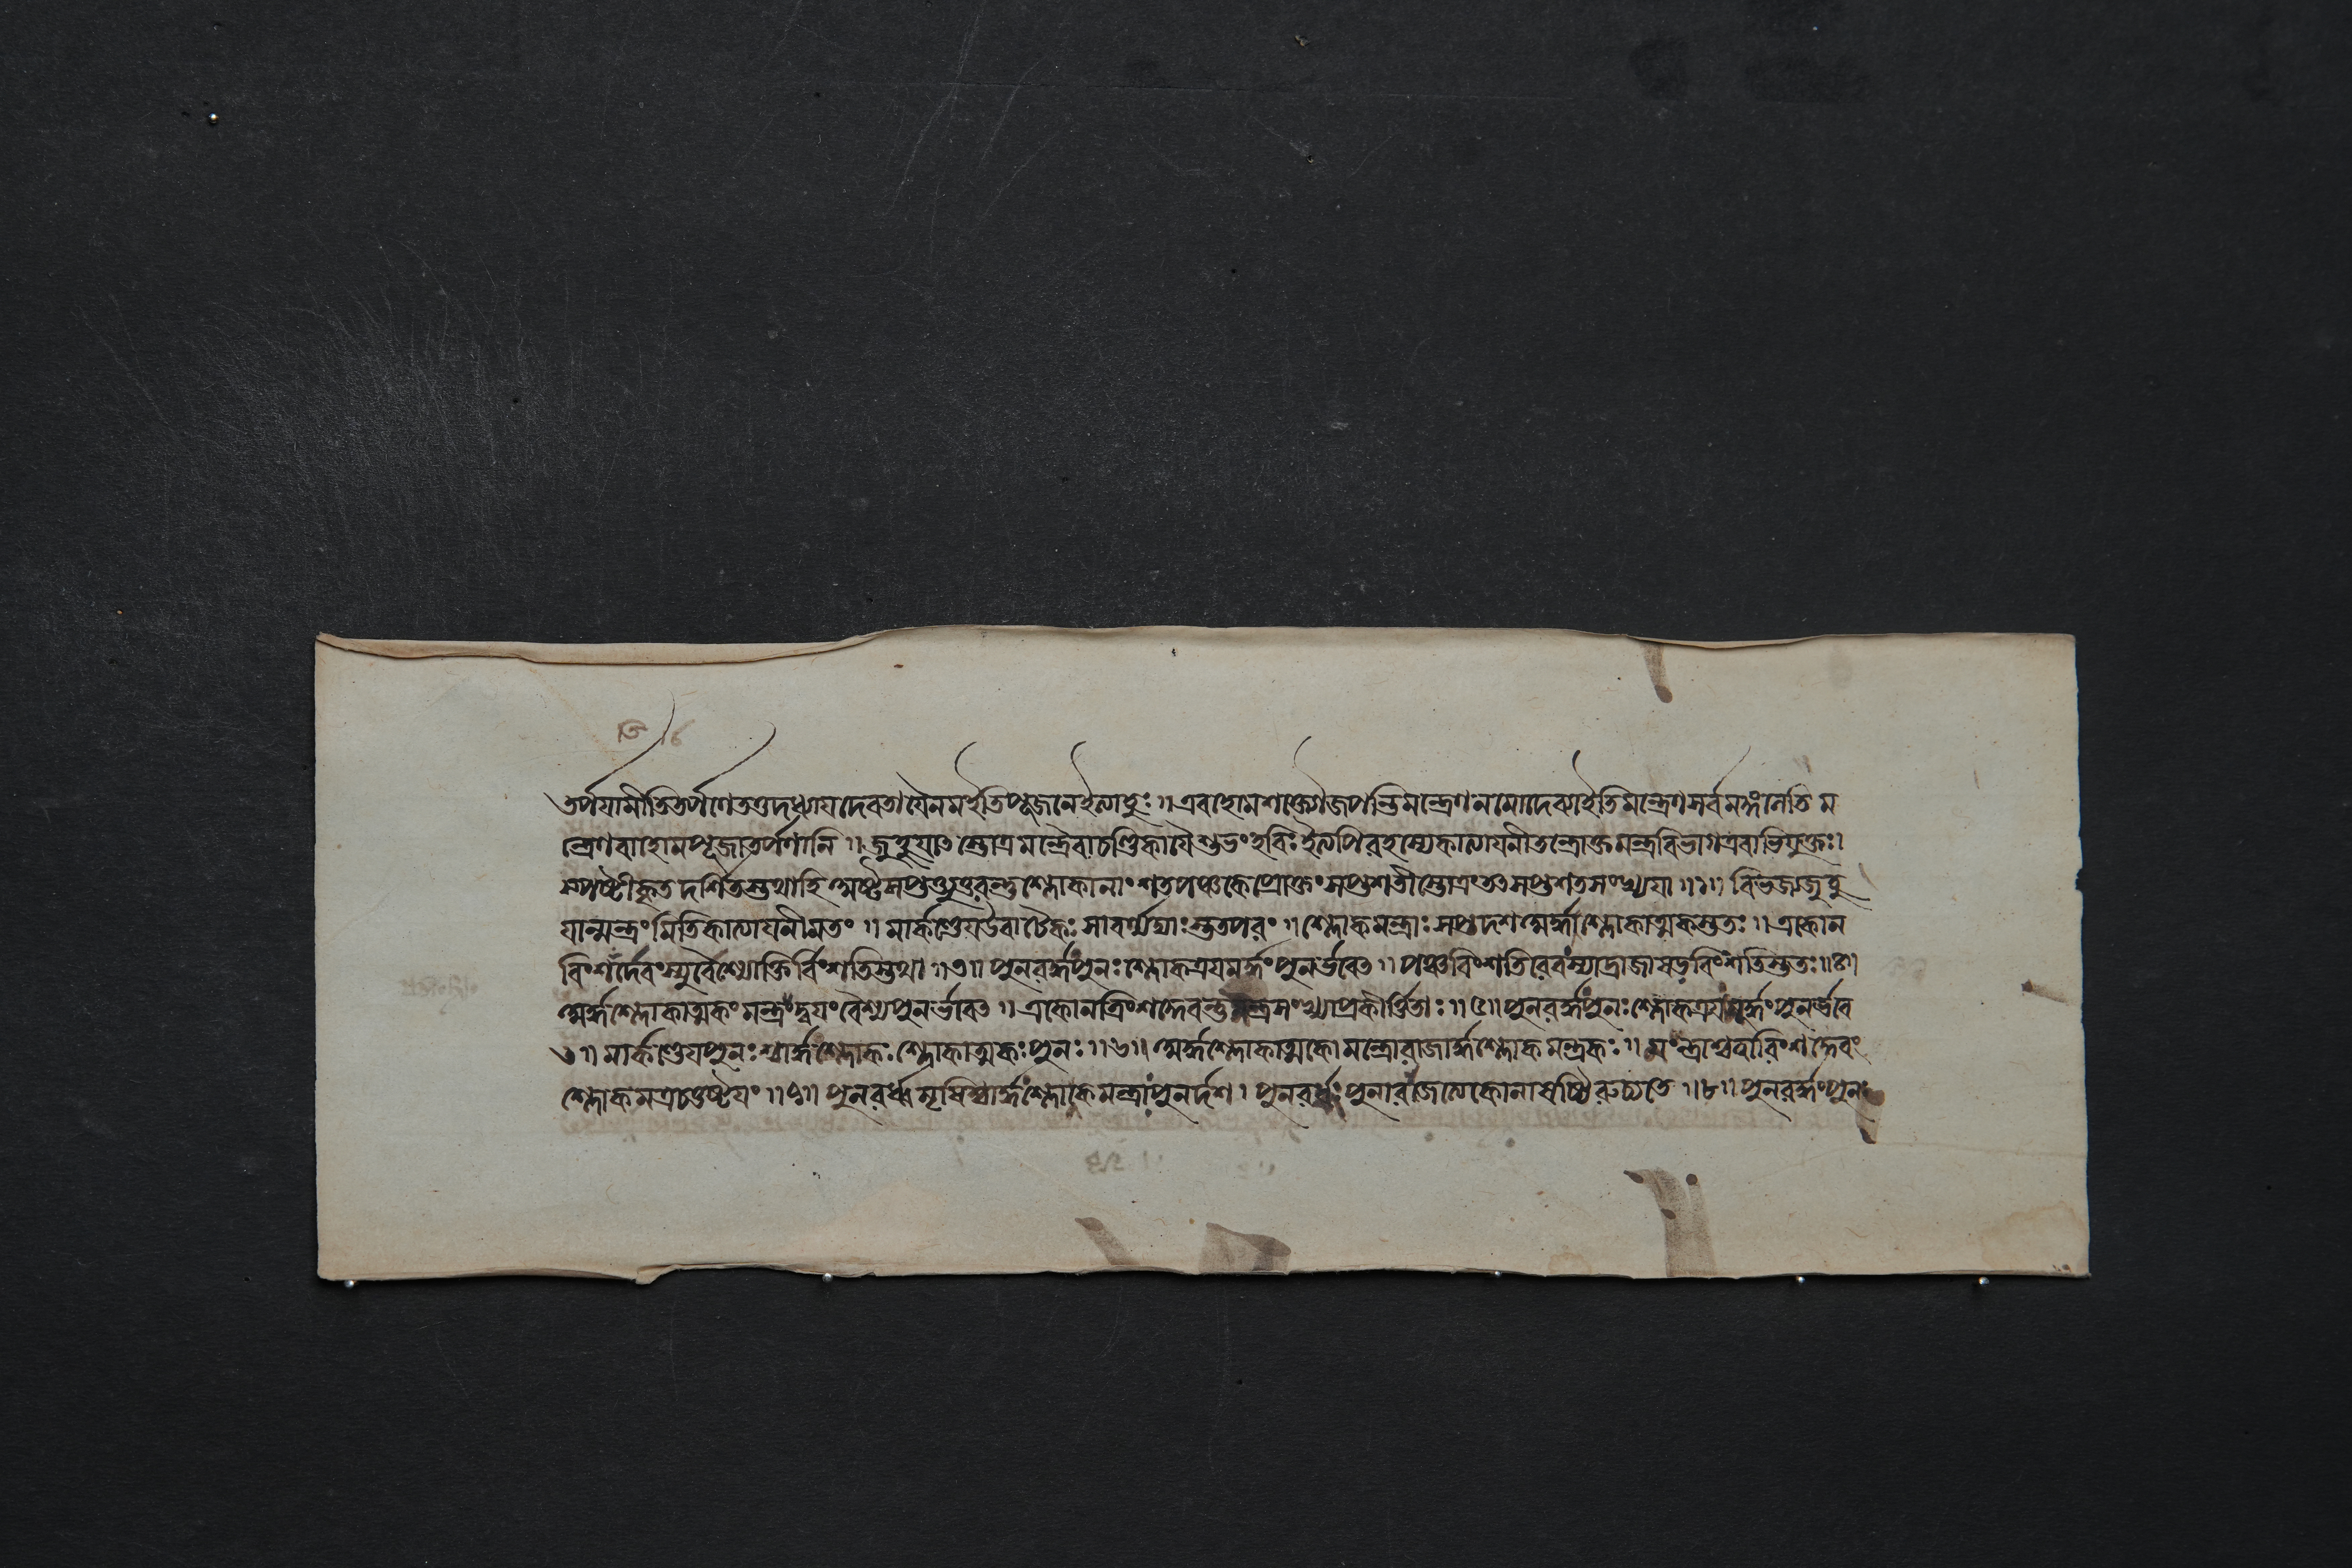 তর্পযামীতিতর্পণেততএদধ্যাযদেবতাযৈনমইতিপূজনেইত্যাহুঃ ॥ এবংহোমশক্তৌজপান্তিমন্ত্রেণনমোদেব্যাইতিমন্ত্রেণসর্বমন্ত্রংনেতি ম
ন্ত্রেণবাহোমপূজাতর্পণানি ॥ জুহুযাৎস্তোত্রমন্ত্রৈর্বাচণ্ডিকাযৈশুভংহবিঃইত্যপিরহস্যেকাত্যাযনীতন্ত্রোক্তমন্ত্রবিভাগএবাভিযুক্তঃ।
স্পষ্টীকৃত্যদর্শিতস্তথাহি শ্লোকানাংশতপঞ্চকেপ্রোক্তংসপ্তশতীস্তোত্রংতৎসপ্তশতসংখ্যযা ॥১॥ বিভজ্যজুহু
যান্মন্ত্রংমিতিকাত্যাযনীমতং ॥ মার্কণ্ডেযউবাচৈকঃ সাবর্ণ্যাদ্যাঃস্তুতপরং ॥ শ্লোকমন্ত্রাঃ সপ্তদশঅর্দ্ধশ্লোকাত্মকস্তুতঃ ॥ একোন
বিংশর্দেবংস্যুর্বৈশ্যোক্তির্বিংশতিস্তথা ॥৩॥ পুনরর্দ্ধংপুনঃশ্লোকত্রযমর্দ্ধংপুনর্ভবেৎ ॥ পঞ্চবিংশতিরেবংস্যাদ্রাজাষড্বিংশতিস্তুতঃ॥৪॥
অর্দ্ধশ্লোকাত্মকংমন্ত্রংদ্বযংবৈশ্যপুনর্ভবেৎ ॥ একোনত্রিংশদেবন্তুমন্ত্রসংখ্যাপ্রকীর্ত্তিতাঃ ॥৫॥ পুনরর্দ্ধংপুনঃশ্লোকত্রযমর্দ্ধংপুনর্ভবে
ৎ॥ মার্কণ্ডেযপুনঃশ্চার্দ্ধশ্লোকঃশ্লোকাত্মকঃপুনঃ ॥৬॥ অর্দ্ধশ্লোকাত্মকোমন্ত্রোরাজার্দ্ধশ্লোকমন্ত্রকঃ ॥ মংন্ত্রাশ্চত্বারিংশদেবং
শ্লোকমত্রচতুষ্টযং ॥৭॥ পুনরর্ধমৃষিশ্চার্দ্ধংশ্লোকেমন্ত্রাংপুনর্দশ। পুনরর্ধংপুনারাজেত্যেকোনাষষ্টিরুচ্যতে ॥৮॥ পুনরর্দ্ধংপুনঃ